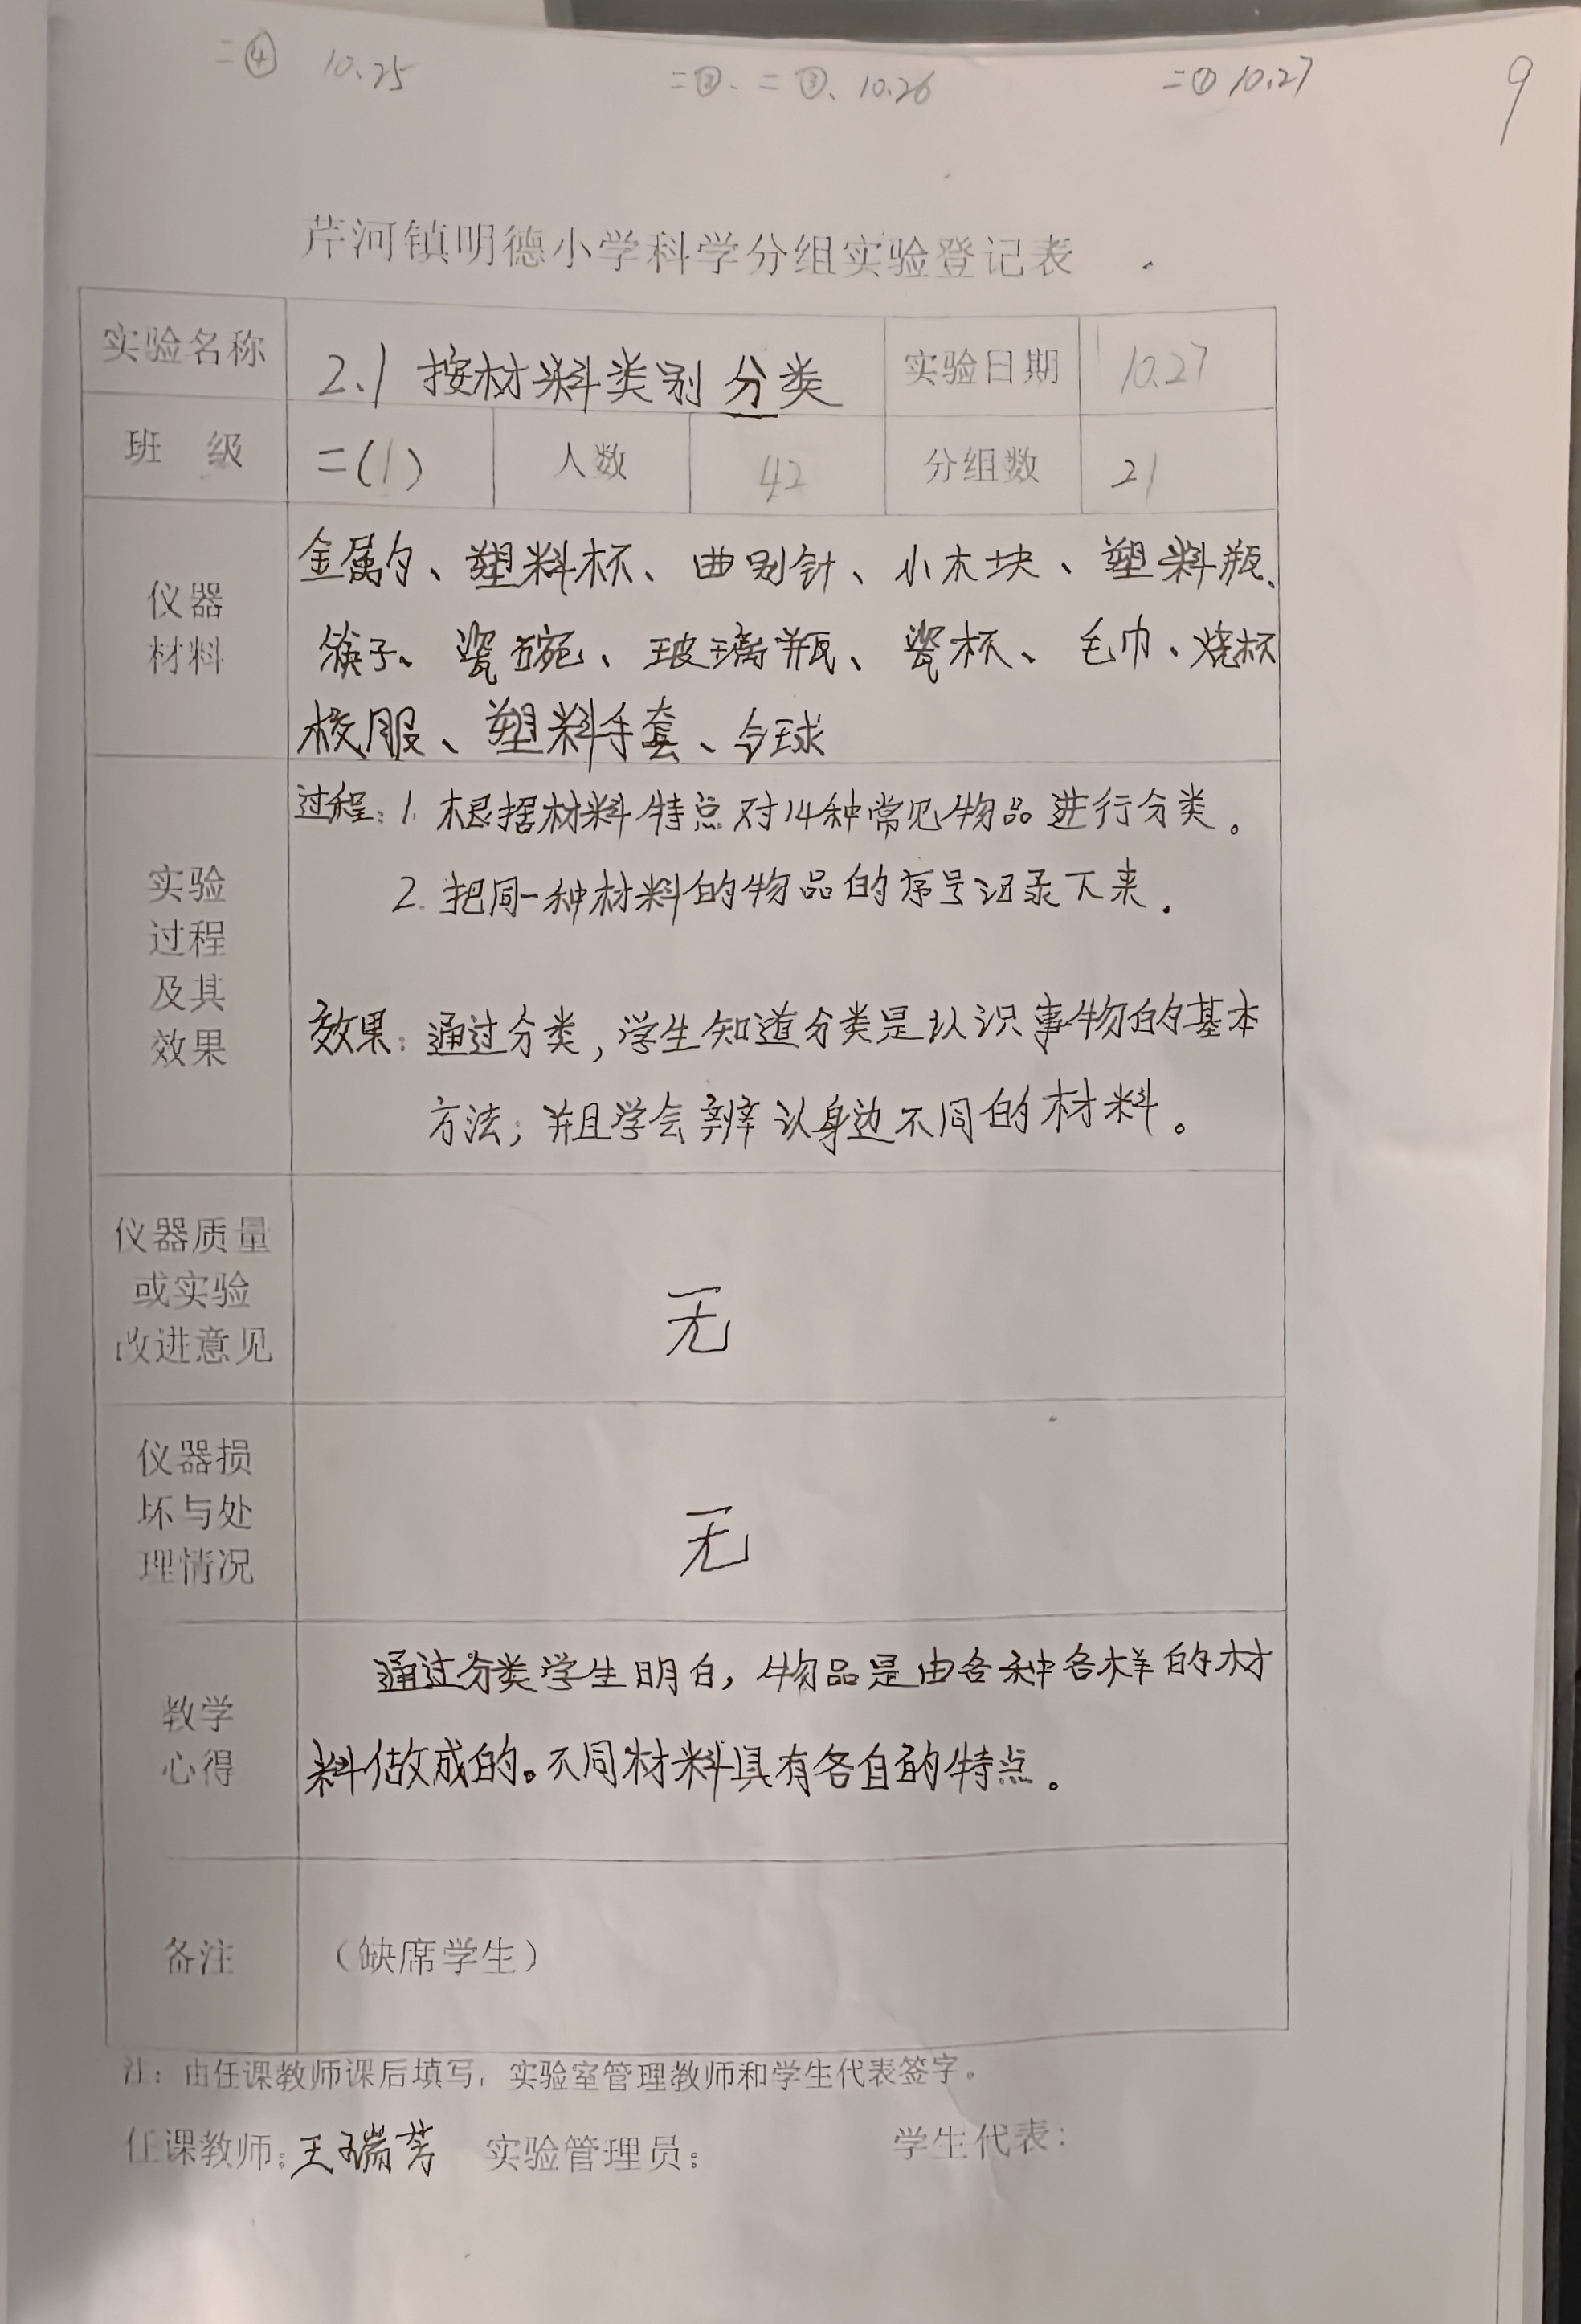 二④ 10.25 二②、二③、10.26 二① 10.27 9
芹河镇明德小学科学分组实验登记表
实验名称 2.1 按材料类别分类 实验日期 10.27
班 级 二(1) 人数 42 分组数 21
仪器
材料
金属勺、塑料杯、曲别针、小木块、塑料瓶、
筷子、瓷碗、玻璃瓶、瓷杯、毛巾、烧杯
校服、塑料手套、令球
实验
过程
及其
效果
过程：1. 根据材料特点对14种常见物品进行分类。
2. 把同一种材料的物品的序号记录下来.
效果：通过分类，学生知道分类是认识事物的基本
方法；并且学会辨认身边不同的材料。
仪器质量
或实验
改进意见
无
仪器损
坏与处
理情况
无
教学
心得
通过分类学生明白，物品是由各种各样的材
料做成的。不同材料具有各自的特点。
备注 （缺席学生）
注：由任课教师课后填写，实验室管理教师和学生代表签字。
任课教师：王瑞芳 实验管理员： 学生代表：